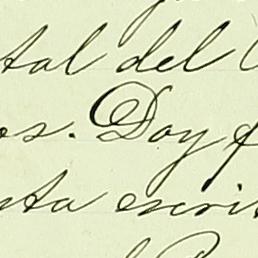 tal del
os. Doy f
sta escrit